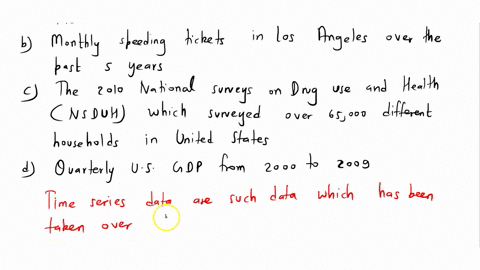 b) Monthly speeding tickets in Los Angeles over the
past 5 years
c) The 2010 National surveys on Drug use and Health
(NSDUH) which surveyed over 65,000 different
households in United States
d) Quarterly U.S. GDP from 2000 to 2009
Time series data are such data which has been
taken over